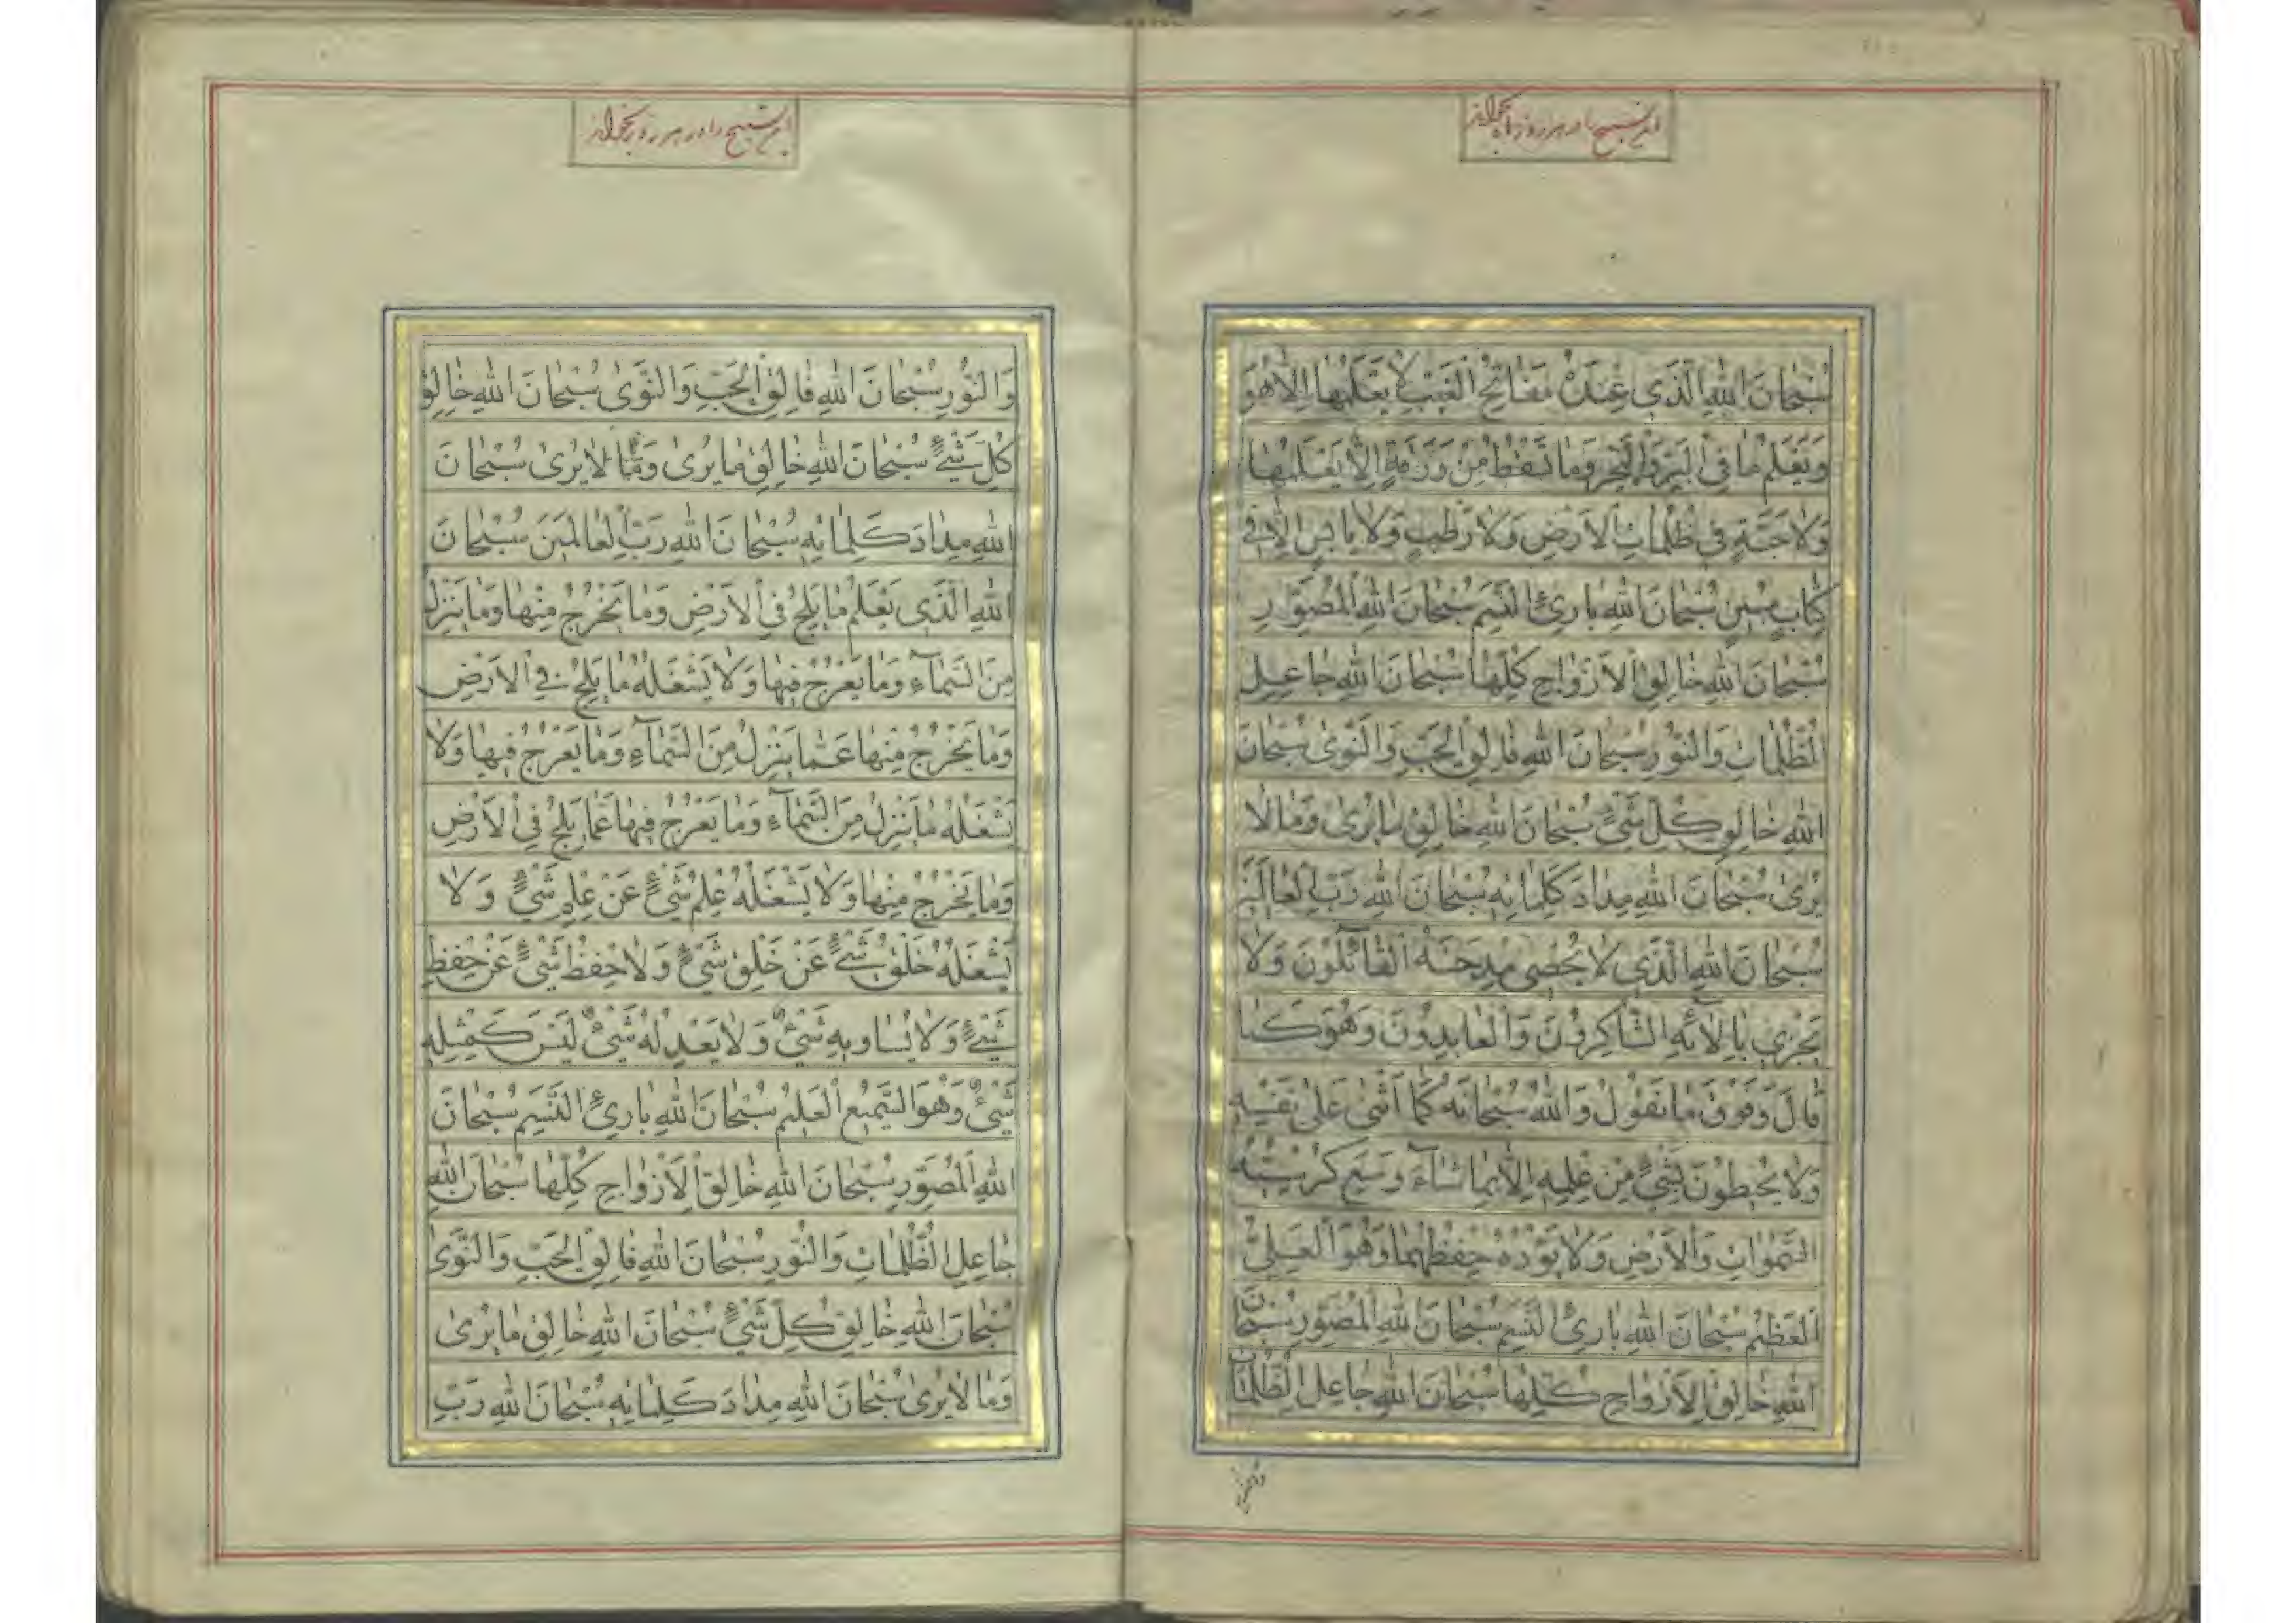 این تسبیح را در هر روز ماه بخواند
سُبْحانَ اللهِ الَّذي عِنْدَهُ مَفاتِحُ الْغَيْبِ لا يَعْلَمُها اِلاّ هُوَ
وَيَعْلَمُ ما فِي الْبَرِّ وَالْبَحْرِ وَما تَسْقُطُ مِنْ وَرَقَةٍ اِلاّ يَعْلَمُها
وَلا حَبَّةٍ في ظُلُماتِ الْاَرْضِ وَلا رَطْبٍ وَلا يابِسٍ اِلاّ في
كِتابٍ مُبينٍ سُبْحانَ اللهِ بارِئِ النَّسَمِ سُبْحانَ اللهِ الْمُصَوِّرِ
سُبْحانَ اللهِ خالِقِ الْاَزْواجِ كُلِّها سُبْحانَ اللهِ جاعِلِ
الظُّلُماتِ وَالنُّورِ سُبْحانَ اللهِ فالِقِ الْحَبِّ وَالنَّوىٰ سُبْحانَ
اللهِ خالِقِ كُلِّ شَيْءٍ سُبْحانَ اللهِ خالِقِ ما يُرىٰ وَما لا
يُرىٰ سُبْحانَ اللهِ مِدادَ كَلِماتِهِ سُبْحانَ اللهِ رَبِّ الْعالَمينَ
سُبْحانَ اللهِ الَّذي لا يُحْصي مِدْحَتَهُ الْقآئِلُونَ وَلا
يَجْزي بِاٰلآئِهِ الشّاكِرُونَ وَالْعابِدُونَ وَهُوَ كَما
قالَ وَفَوْقَ ما نَقُولُ وَاللهُ سُبْحانَهُ كَما اَثْنىٰ عَلىٰ نَفْسِهِ
وَلا يُحيطُونَ بِشَيْءٍ مِنْ عِلْمِهِ اِلاّ بِما شآءَ وَسِعَ كُرْسِيُّهُ
السَّمٰواتِ وَالْاَرْضَ وَلا يَؤُدُهُ حِفْظُهُما وَهُوَ الْعَلِيُّ
الْعَظيمُ سُبْحانَ اللهِ بارِئِ النَّسَمِ سُبْحانَ اللهِ الْمُصَوِّرِ سُبْحانَ
اللهِ خالِقِ الْاَزْواجِ كُلِّها سُبْحانَ اللهِ جاعِلِ الظُّلُماتِ
این تسبیح را در هر روز بخواند
وَالنُّورِ سُبْحانَ اللهِ فالِقِ الْحَبِّ وَالنَّوىٰ سُبْحانَ اللهِ خالِقِ
كُلِّ شَيْءٍ سُبْحانَ اللهِ خالِقِ ما يُرىٰ وَمّا لا يُرىٰ سُبْحانَ
اللهِ مِدادَ كَلِماتِهِ سُبْحانَ اللهِ رَبِّ الْعالَمينَ سُبْحانَ
اللهِ الَّذي يَعْلَمُ ما يَلِجُ فِي الْاَرْضِ وَما يَخْرُجُ مِنْها وَما يَنْزِلُ
مِنَ السَّمآءِ وَما يَعْرُجُ فيها وَلا يَشْغَلُهُ ما يَلِجُ فِي الْاَرْضِ
وَما يَخْرُجُ مِنْها عَمّا يَنْزِلُ مِنَ السَّمآءِ وَما يَعْرُجُ فيها وَلا
يَشْغَلُهُ ما يَنْزِلُ مِنَ السَّمآءِ وَما يَعْرُجُ فيها عَمّا يَلِجُ فِي الْاَرْضِ
وَما يَخْرُجُ مِنْها وَلا يَشْغَلُهُ عِلْمُ شَيْءٍ عَنْ عِلْمِ شَيْءٍ وَلا
يَشْغَلُهُ خَلْقُ شَيْءٍ عَنْ خَلْقِ شَيْءٍ وَلا حِفْظُ شَيْءٍ عَنْ حِفْظِ
شَيْءٍ وَلا يُساويهِ شَيْءٌ وَلا يَعْدِلُهُ شَيْءٌ لَيْسَ كَمِثْلِهِ
شَيْءٌ وَهُوَ السَّميعُ الْعَليمُ سُبْحانَ اللهِ بارِئِ النَّسَمِ سُبْحانَ
اللهِ الْمُصَوِّرِ سُبْحانَ اللهِ خالِقِ الْاَزْواجِ كُلِّها سُبْحانَ اللهِ
جاعِلِ الظُّلُماتِ وَالنُّورِ سُبْحانَ اللهِ فالِقِ الْحَبِّ وَالنَّوىٰ
سُبْحانَ اللهِ خالِقِ كُلِّ شَيْءٍ سُبْحانَ اللهِ خالِقِ ما يُرىٰ
وَما لا يُرىٰ سُبْحانَ اللهِ مِدادَ كَلِماتِهِ سُبْحانَ اللهِ رَبِّ